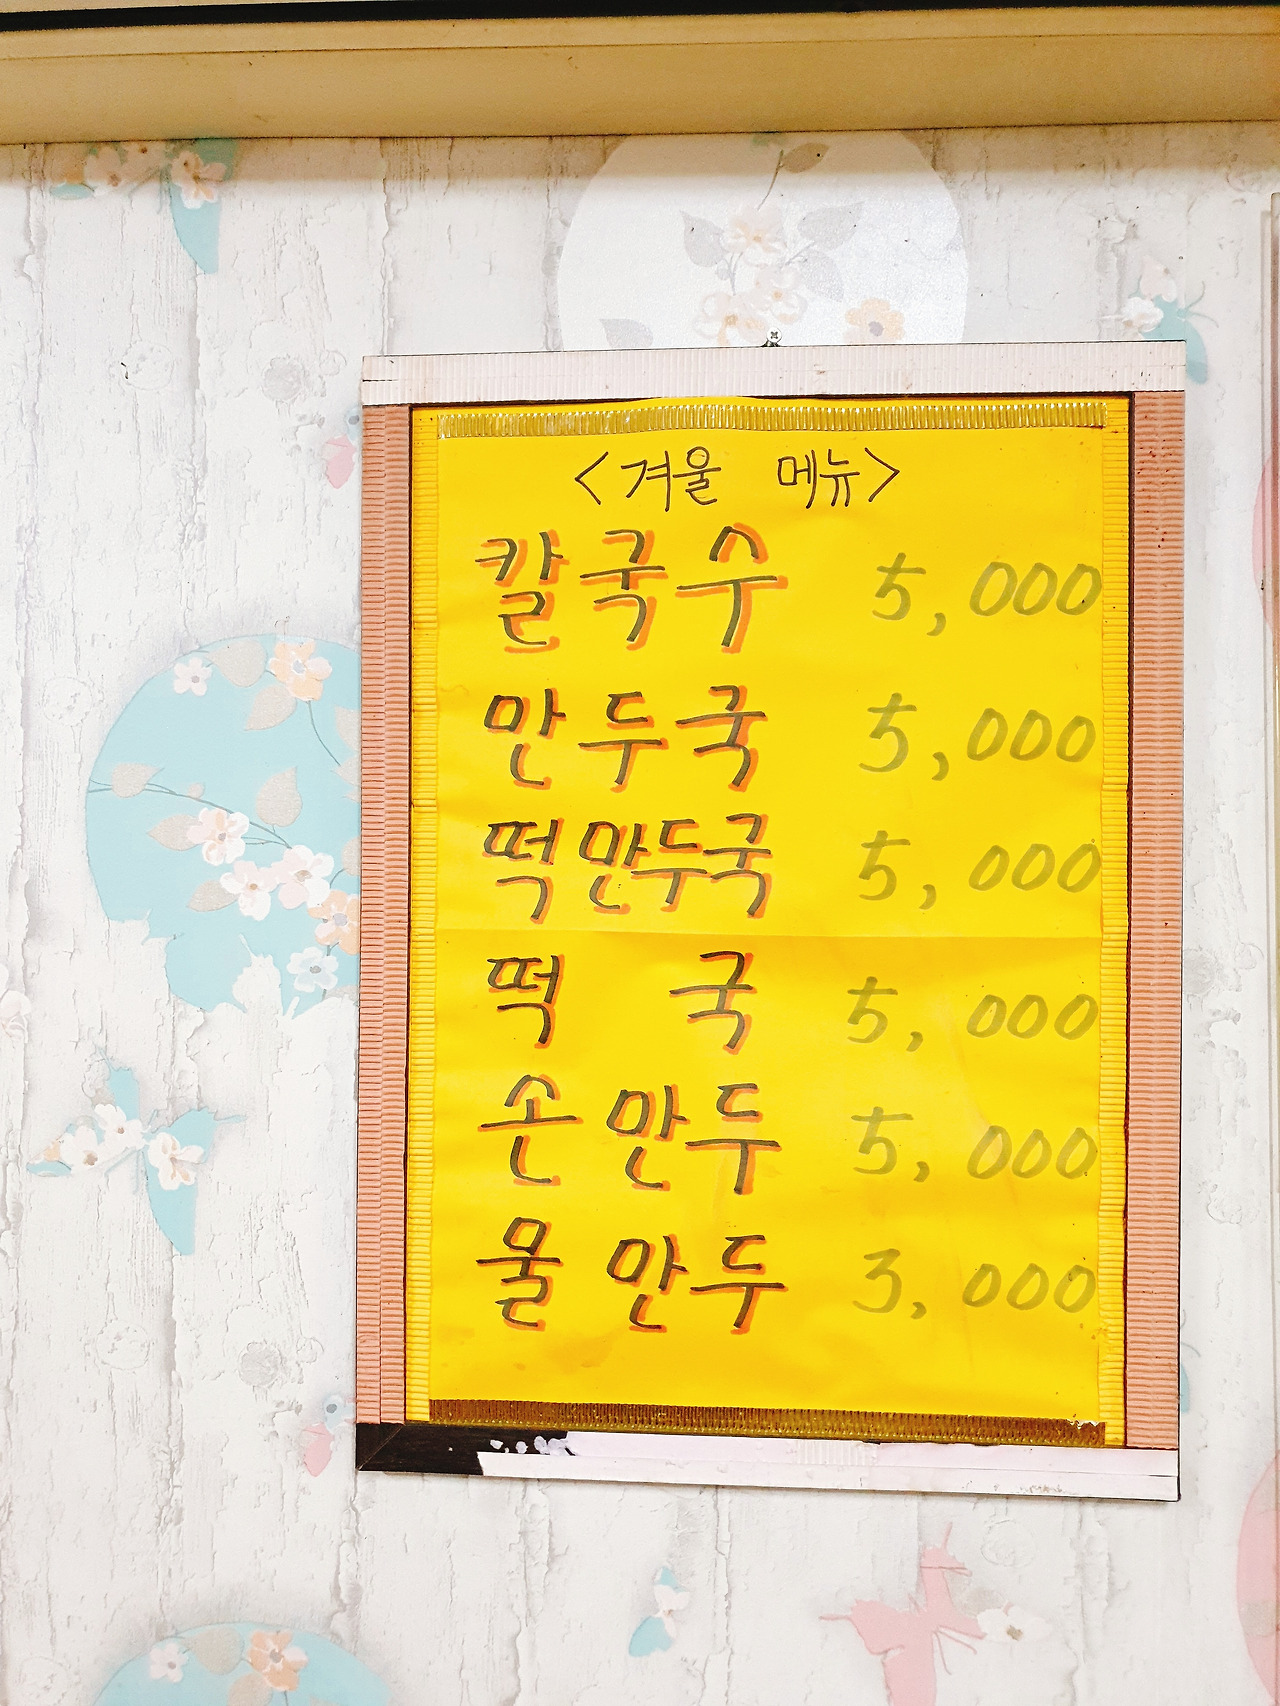 <겨울 메뉴>
칼국수 5,000
만두국 5,000
떡만두국 5,000
떡국 5,000
손만두 5,000
물만두 3,000